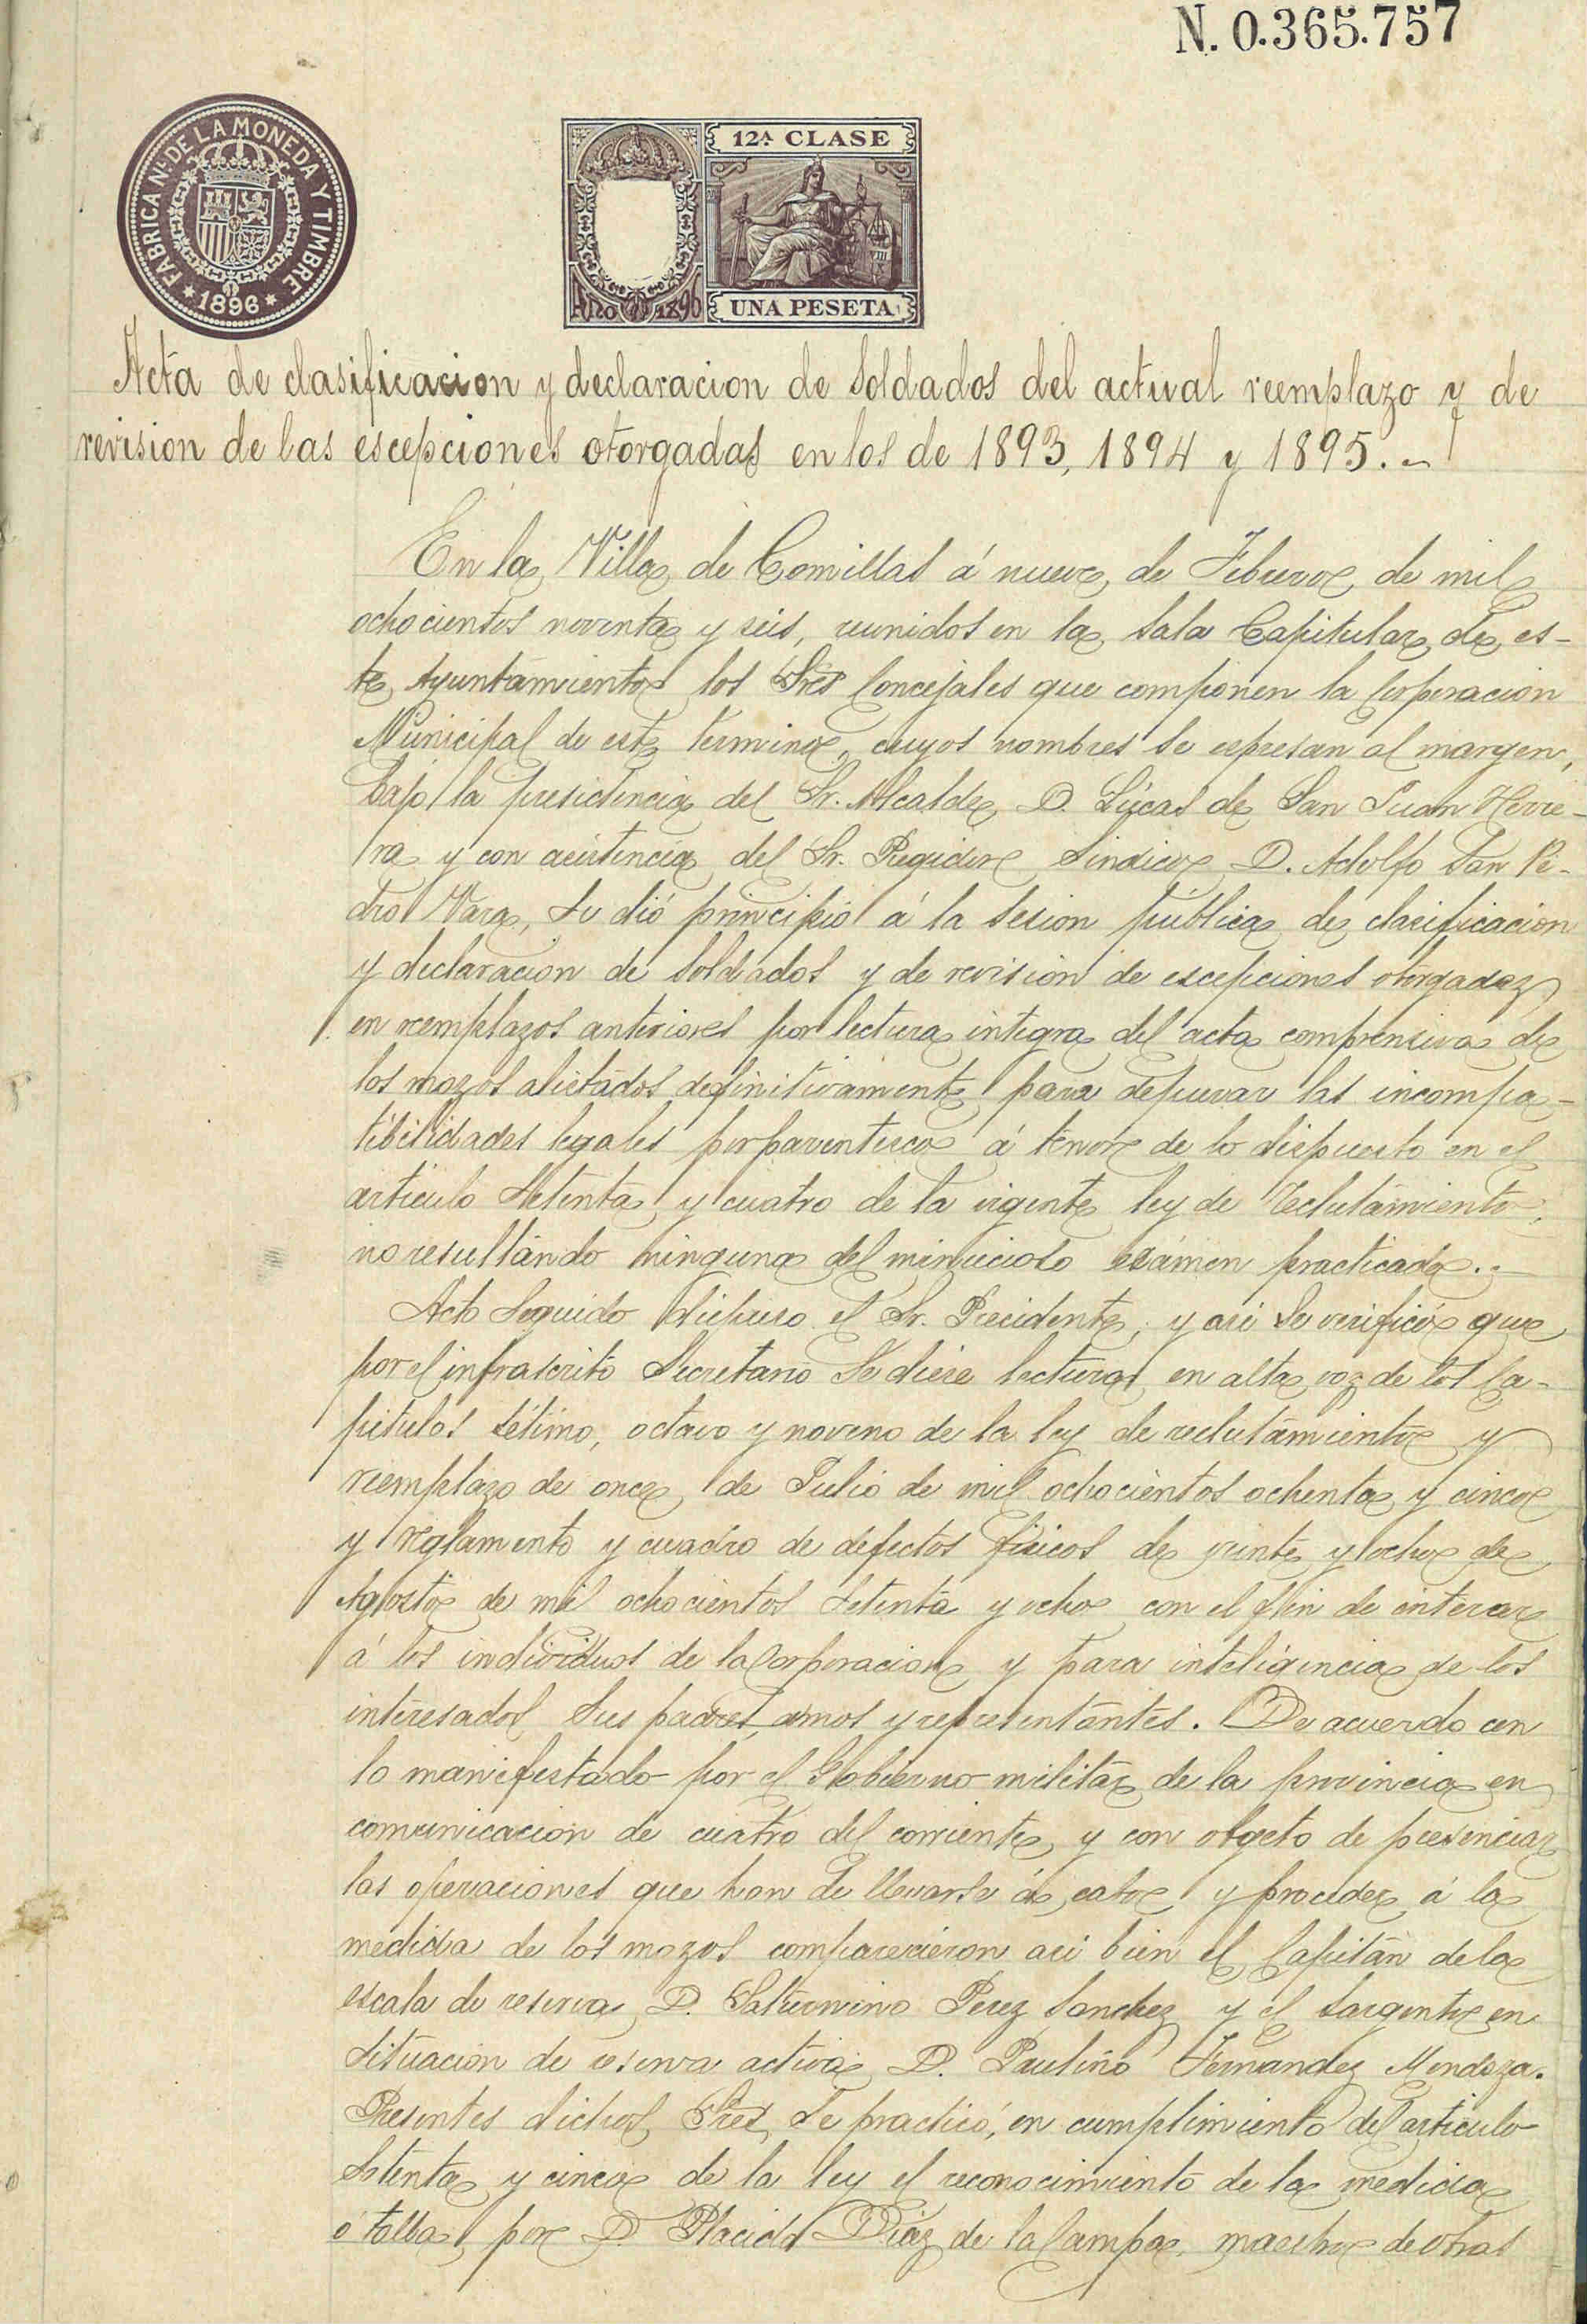 N. 0.365.757
FABRICA NL. DE LA MONEDA Y TIMBRE
* 1896 *
12A CLASE
AÑO 1896
UNA PESETA
Acta de clasificacion y declaracion de Soldados del actual reemplazo y de
revision de las escepciones otorgadas en los de 1893, 1894 y 1895.-
En la Villa de Comillas á nueve de Febrero de mil
ochocientos noventa y seis, reunidos en la Sala Capitular de es-
te Ayuntamiento los Sres Concejales que componen la Corporacion
Municipal de este termino, cuyos nombres se espresan al margen,
bajo la presidencia del Sr. Alcalde D. Lúcas de San Juan Herre-
ra y con asistencia del Sr. Regidor Sindico D. Adolfo San Pe-
dro Vara, se dió principio á la sesion pública de clasificacion
y declaracion de Soldados y de revision de escepciones otorgadas
en reemplazos anteriores por lectura integra del acta comprensiva de
los mozos alistados definitivamente para depurar las incompa-
tibilidades legales por parentesco á tenor de lo dispuesto en el
articulo setenta y cuatro de la vigente ley de Reclutamiento,
no resultando ninguna del minucioso exámen practicado.-
Acto seguido dispuso el Sr. Presidente, y asi se verificó que
por el infrascrito Secretario se diese lectura en alta voz de los Ca-
pitulos sétimo, octavo y noveno de la ley de reclutamiento y
reemplazo de once de Julio de mil ochocientos ochenta y cinco
y reglamento y cuadro de defectos fisicos de veinte y ocho de
Agosto de mil ochocientos setenta y ocho con el fin de enterar
á los individuos de la Corporacion y para inteligencia de los
interesados sus padres, amos y representantes. De acuerdo con
lo manifestado por el Gobierno militar de la provincia en
comunicacion de cuatro del corriente, y con objeto de presenciar
las operaciones que han de llevarse á cabo y proceder á la
medida de los mozos comparecieron asi bien el Capitán de la
escala de reserva D. Saturnino Perez Sanchez y el Sargento en
situacion de reserva activa D. Paulino Fernandez Mendoza.
Presentes dichos Sres, se practicó, en cumplimiento del articulo
setenta y cinco de la ley el reconocimiento de la medida
ó talla por D. Placido Diaz de la Campa, maestro de obras